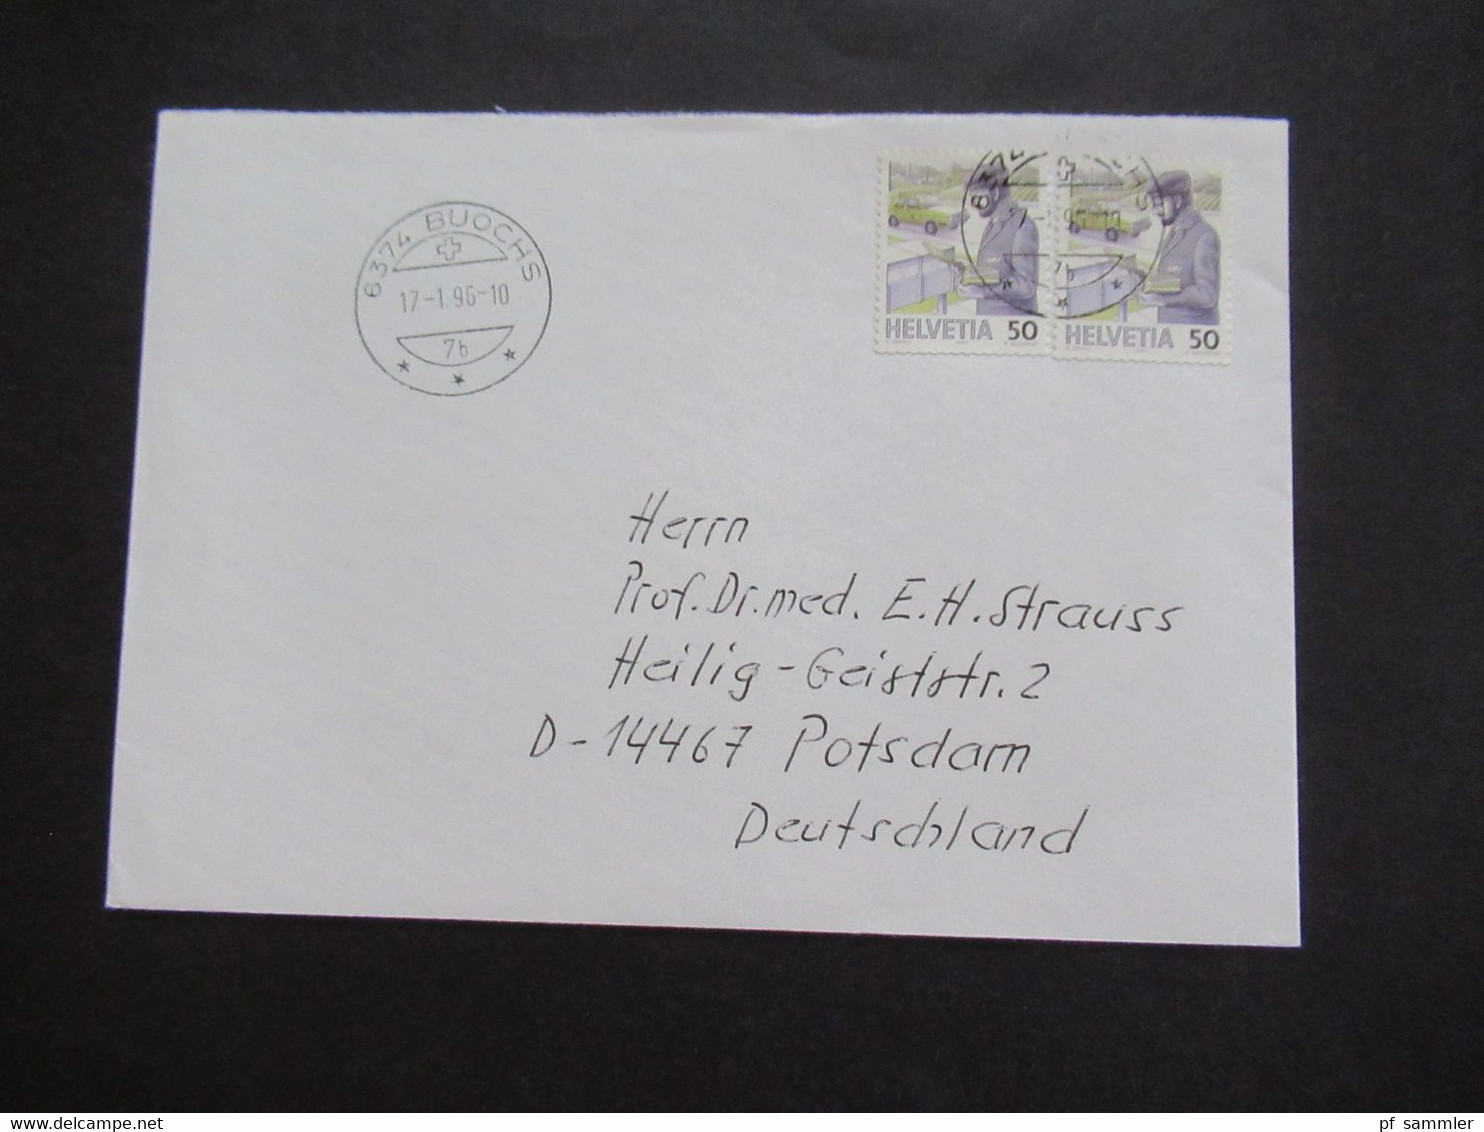 6374 BUOCHS
17.-1.96-10
7b
HELVETIA 50
HELVETIA 50
7b
Herrn
Prof. Dr. med. E. H. Strauss
Heilig-Geiststr. 2
D-14467 Potsdam
Deutschland
www.delcampe.net
pf_sammler